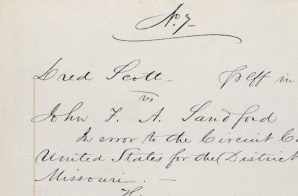 No. 7
Dred Scott Plff in
vs
John F. A. Sandford
In error to the Circuit C
United States for the District
Missouri